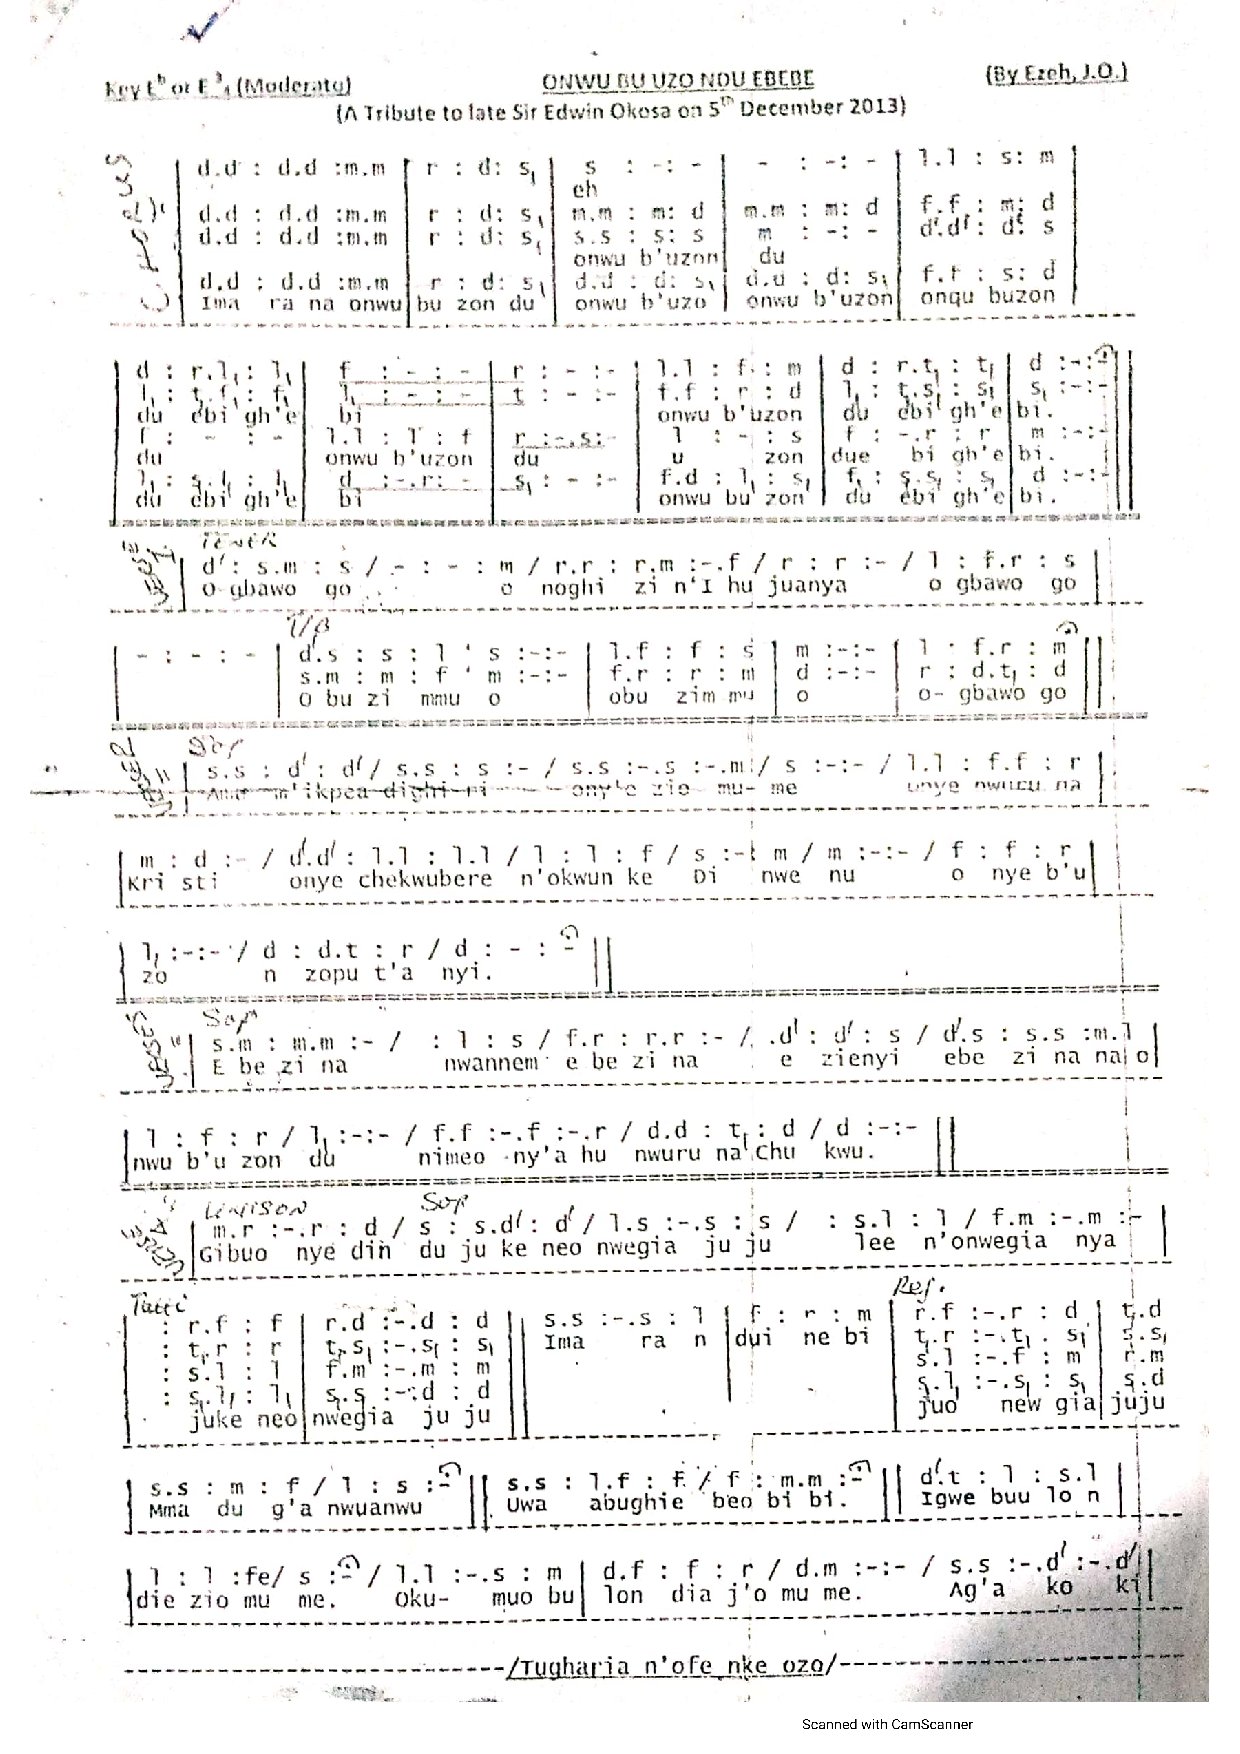 Key E♭ or E 3/4 (Moderato)
ONWU BU UZO NDU EBEBE
(By Ezeh, J.O.)
(A Tribute to late Sir Edwin Okosa on 5th December 2013)
CHORUS
d.d : d.d :m.m | r : d: s₁ | s : -: - | - : -: - | l.l : s: m
eh
d.d : d.d :m.m | r : d: s₁ | m.m : m: d | m.m : m: d | f.f : m: d
d.d : d.d :m.m | r : d: s₁ | s.s : s: s | m : -: - | d'.d': d': s
onwu b'uzon du
d.d : d.d :m.m | r : d: s₁ | d.d : d: s₁ | d.d : d: s₁ | f.f : s: d
Ima ra na onwu bu zon du onwu b'uzo onwu b'uzon onqu buzon
d : r.l₁: l₁ | f : - : - | r : - :- | l.l : f : m | d : r.t₁ : t₁ | d :-:-
l₁ : t₁.f₁: f₁ | l₁ : - : - | t : - :- | f.f : r : d | l₁ : t₁.s₁: s₁ | s₁ :-:-
du ebi gh'e bi onwu b'uzon du ebi gh'e bi.
f : - : - | l.l : l : f | r :-.s:- | l : - : s | f : -.r : r | m :-:-
du onwu b'uzon du u zon due bi gh'e bi.
l₁ : s₁.l₁ : l₁ | d :-.r: - | s₁ : - :- | f.d : l₁ : s₁ | f₁ : s₁.s₁ : s₁ | d :-:-
du ebi gh'e bi onwu bu zon du ebi gh'e bi.
VERSE I. TENOR
d' : s.m : s / - : - : m / r.r : r.m :-.f / r : r :- / l : f.r : s
O-gbawo go o noghi zi n'I hu juanya o gbawo go
T/B
- : - : - | d'.s : s : l ' s :-:- | l.f : f : s | m :-:- | l : f.r : m
s.m : m : f ' m :-:- | f.r : r : m | d :-:- | r : d.t₁ : d
O bu zi mmu o obu zim mu o o- gbawo go
VERSE II Sop
s.s : d' : d' / s.s : s :- / s.s :-.s :-.m / s :-:- / l.l : f.f : r
m'ikpea dighi ri ony'e zio mu- me onye nwuru na
m : d :- / d'.d' : l.l : l.l / l : l : f / s :-: m / m :-:- / f : f : r
Kri sti onye chekwubere n'okwun ke Di nwe nu o nye b'u
l₁ :-:- / d : d.t : r / d : - : -
zo n zopu t'a nyi.
VERSE III Sop
s.m : m.m :- / : l : s / f.r : r.r :- / .d' : d' : s / d'.s : s.s :m.l
E be zi na nwannem e be zi na e zienyi ebe zi na na o
l : f : r / l₁ :-:- / f.f :-.f :-.r / d.d : t₁ : d / d :-:-
nwu b'u zon du nimeo ny'a hu nwuru na Chu kwu.
VERSE 4 UNISON Sop
m.r :-.r : d / s : s.d' : d' / l.s :-.s : s / : s.l : l / f.m :-.m :-
Gibuo nye din du ju ke neo nwegia ju ju lee n'onwegia nya
Tutti Ref.
: r.f : f | r.d :-.d : d || s.s :-.s : l | f : r : m | r.f :-.r : d | t₁.d
Ima ra n dui ne bi
: t₁.r : r | t₁.s₁ :-.s₁ : s₁ || t₁.r :-.t₁ . s₁ | s.s₁
: s.l : l | f.m :-.m : m || s.l :-.f : m | r.m
: s₁.l₁ : l₁ | s₁.s :-.d : d || s₁.l₁ :-.s₁ : s₁ | s.d
juke neo nwegia ju ju juo new gia juju
s.s : m : f / l : s :- || s.s : l.f : f / f : m.m :- || d'.t : l : s.l
Mma du g'a nwuanwu Uwa abughie beo bi bi. Igwe buu lo n
l : l :fe/ s :- / l.l :-.s : m | d.f : f : r / d.m :-:- / s.s :-.d' :-.d'
die zio mu me. Oku- muo bu lon dia j'o mu me. Ag'a ko ki
/Tugharia n'ofe nke ozo/
Scanned with CamScanner